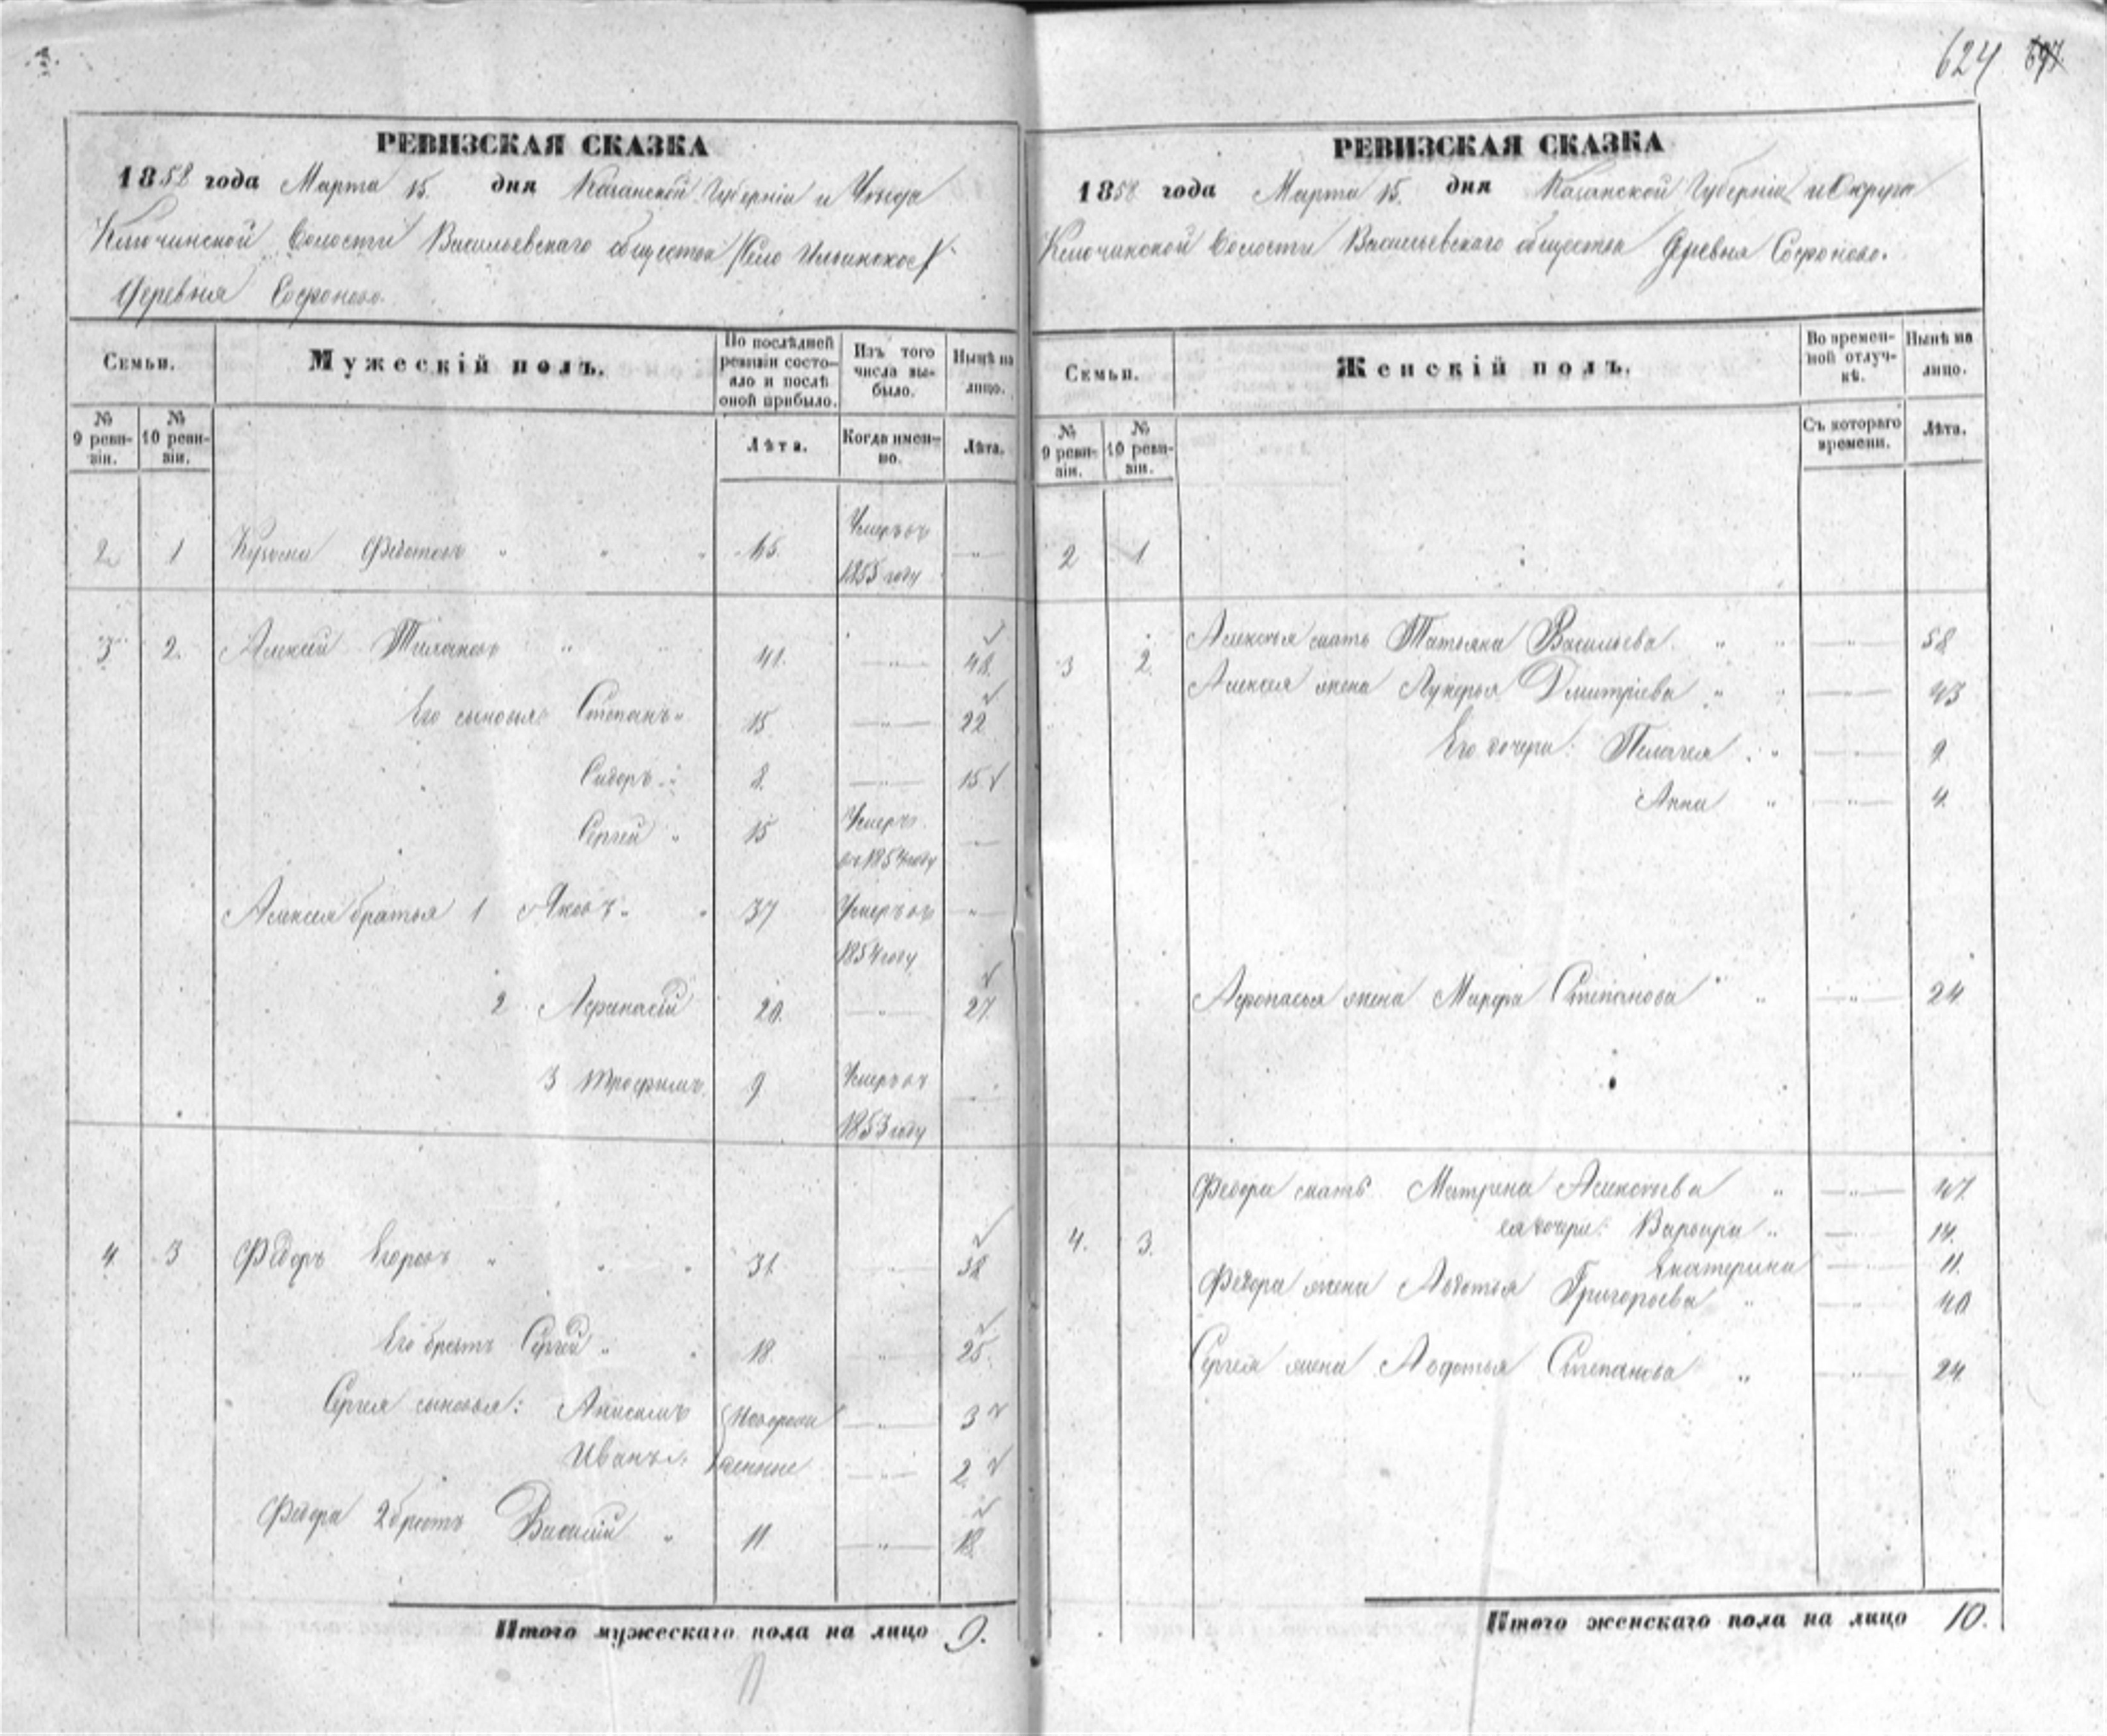 624 697
РЕВИЗСКАЯ СКАЗКА
1858 года Марта 15. дня Казанской Губерніи и Уѣзда
Ключинской Волости Васильевскаго общества /Село Ильинское/
Деревня Софоново.
Семьи.
Мужескій полъ.
По послѣдней ревизіи состояло и послѣ оной прибыло.
Изъ того числа выбыло.
Нынѣ на лицо.
№ 9 ревизіи.
№ 10 ревизіи.
Лѣта.
Когда именно.
Лѣта.
2 1 Кузьма Федотовъ " " " 65. Умеръ въ 1855 году — " —
3 2. Алексѣй " 41. — " — 48.
Его сыновья Степанъ " 15 — " — 22
Сидоръ " 8. — " — 15
Сергѣй " 15 Умеръ въ 1854 году — " —
Алексѣя братья 1 Яковъ " " 37 Умеръ въ 1854 году — " —
2 Афанасій 20. — " — 27.
3 Трофимъ 9 Умеръ въ 1853 году — " —
4 3 Федоръ Егоровъ " " " 31. — " — 38
Его братъ Сергѣй " " 18. — " — 25.
Сергѣя сыновья: Анисимъ Новорож — " — 3
Иванъ " денные — " — 2
Федора 2 братъ Василій " 11 — " — 18.
Итого мужескаго пола на лицо 9.
РЕВИЗСКАЯ СКАЗКА
1858 года Марта 15. дня Казанской Губерніи и Округа
Ключинской Волости Васильевскаго общества Деревня Софоново.
Семьи.
Женскій полъ.
Во временной отлучкѣ.
Нынѣ на лицо.
№ 9 ревизіи.
№ 10 ревизіи.
Съ котораго времени.
Лѣта.
2 1
3 2. Алексѣя мать Татьяна Васильева " " — " — 58
Алексѣя жена Лукерья Дмитріева " " — " — 43
Его дочери: Пелагея " — " — 9
Анна " — " — 4.
Афонасья жена Марфа Степанова " " — " — 24.
4. 3. Федора мать Матрена Алексѣева " — " — 47.
ея дочери: Варвара " — " — 14.
Екатерина — " — 11.
Федора жена Авдотья Григорьева " — " — 40
Сергѣя жена Авдотья Степанова " — " — 24.
Итого женскаго пола на лицо 10.